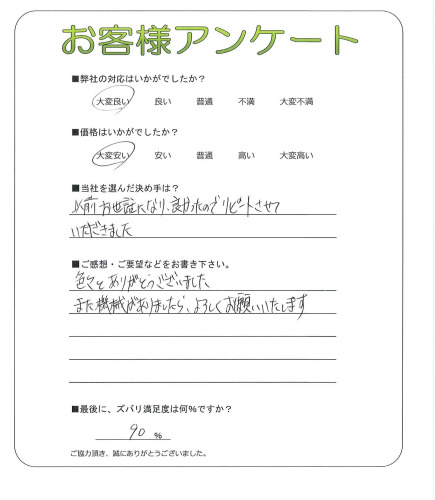 お客様アンケート
■弊社の対応はいかがでしたか?
大変良い 良い 普通 不満 大変不満
■価格はいかがでしたか?
大変安い 安い 普通 高い 大変高い
■当社を選んだ決め手は?
以前お世話になり、良かったのでリピートさせて
いただきました
■ご感想・ご要望などをお書き下さい。
色々とありがとうございました
また機械がありましたら、よろしくお願いいたします
■最後に、ズバリ満足度は何%ですか?
90 %
ご協力頂き、誠にありがとうございました。